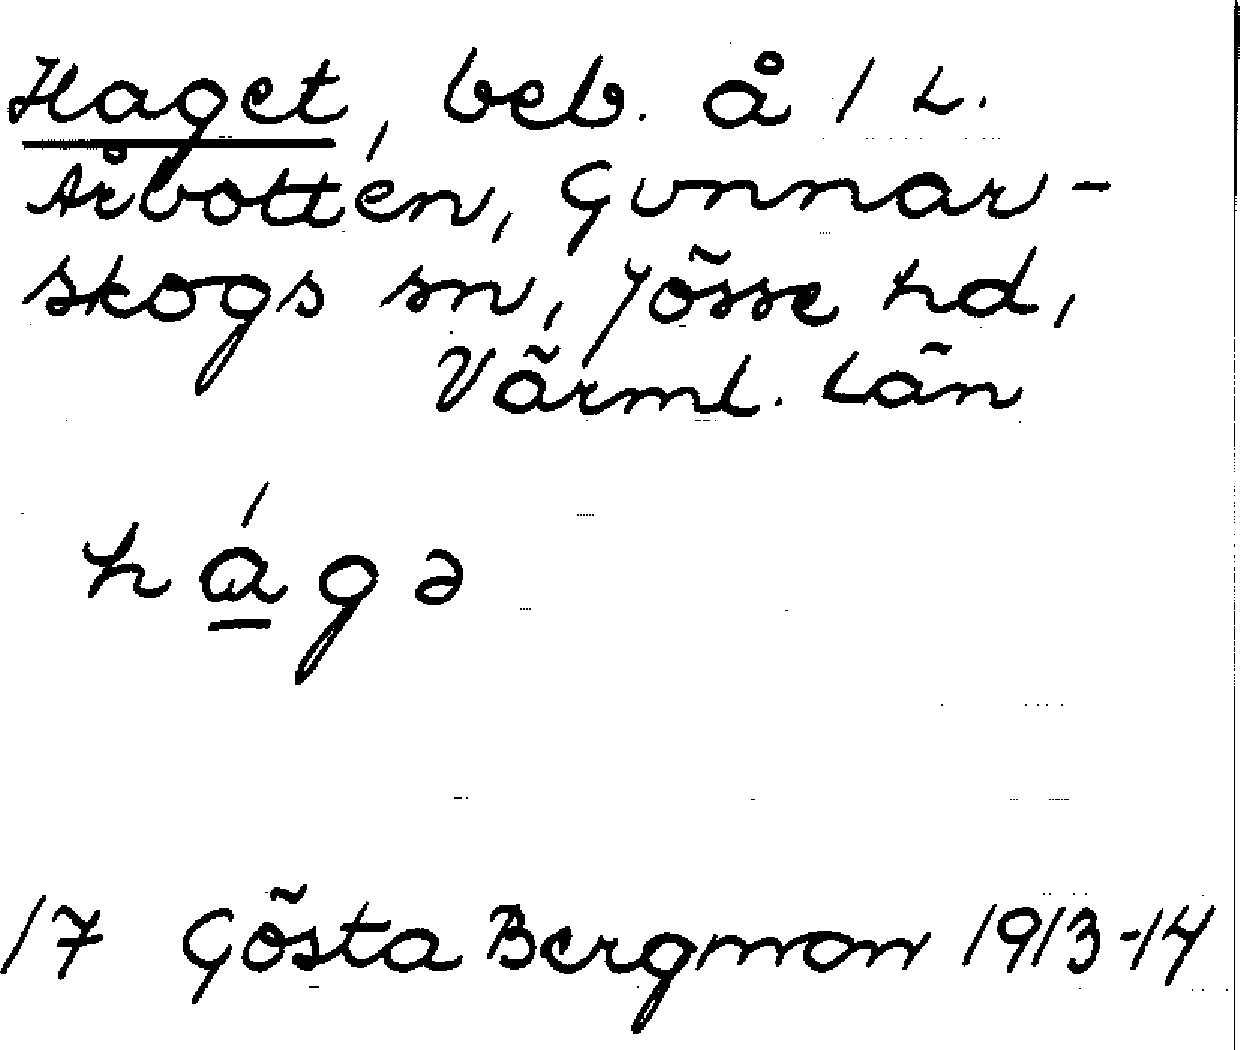 Haget, beb. å 1 L.
Årbotten, Gunnar-
skogs sn, Jösse hd,
Värml. Län
há̱gə
17 Gösta Bergman 1913-14